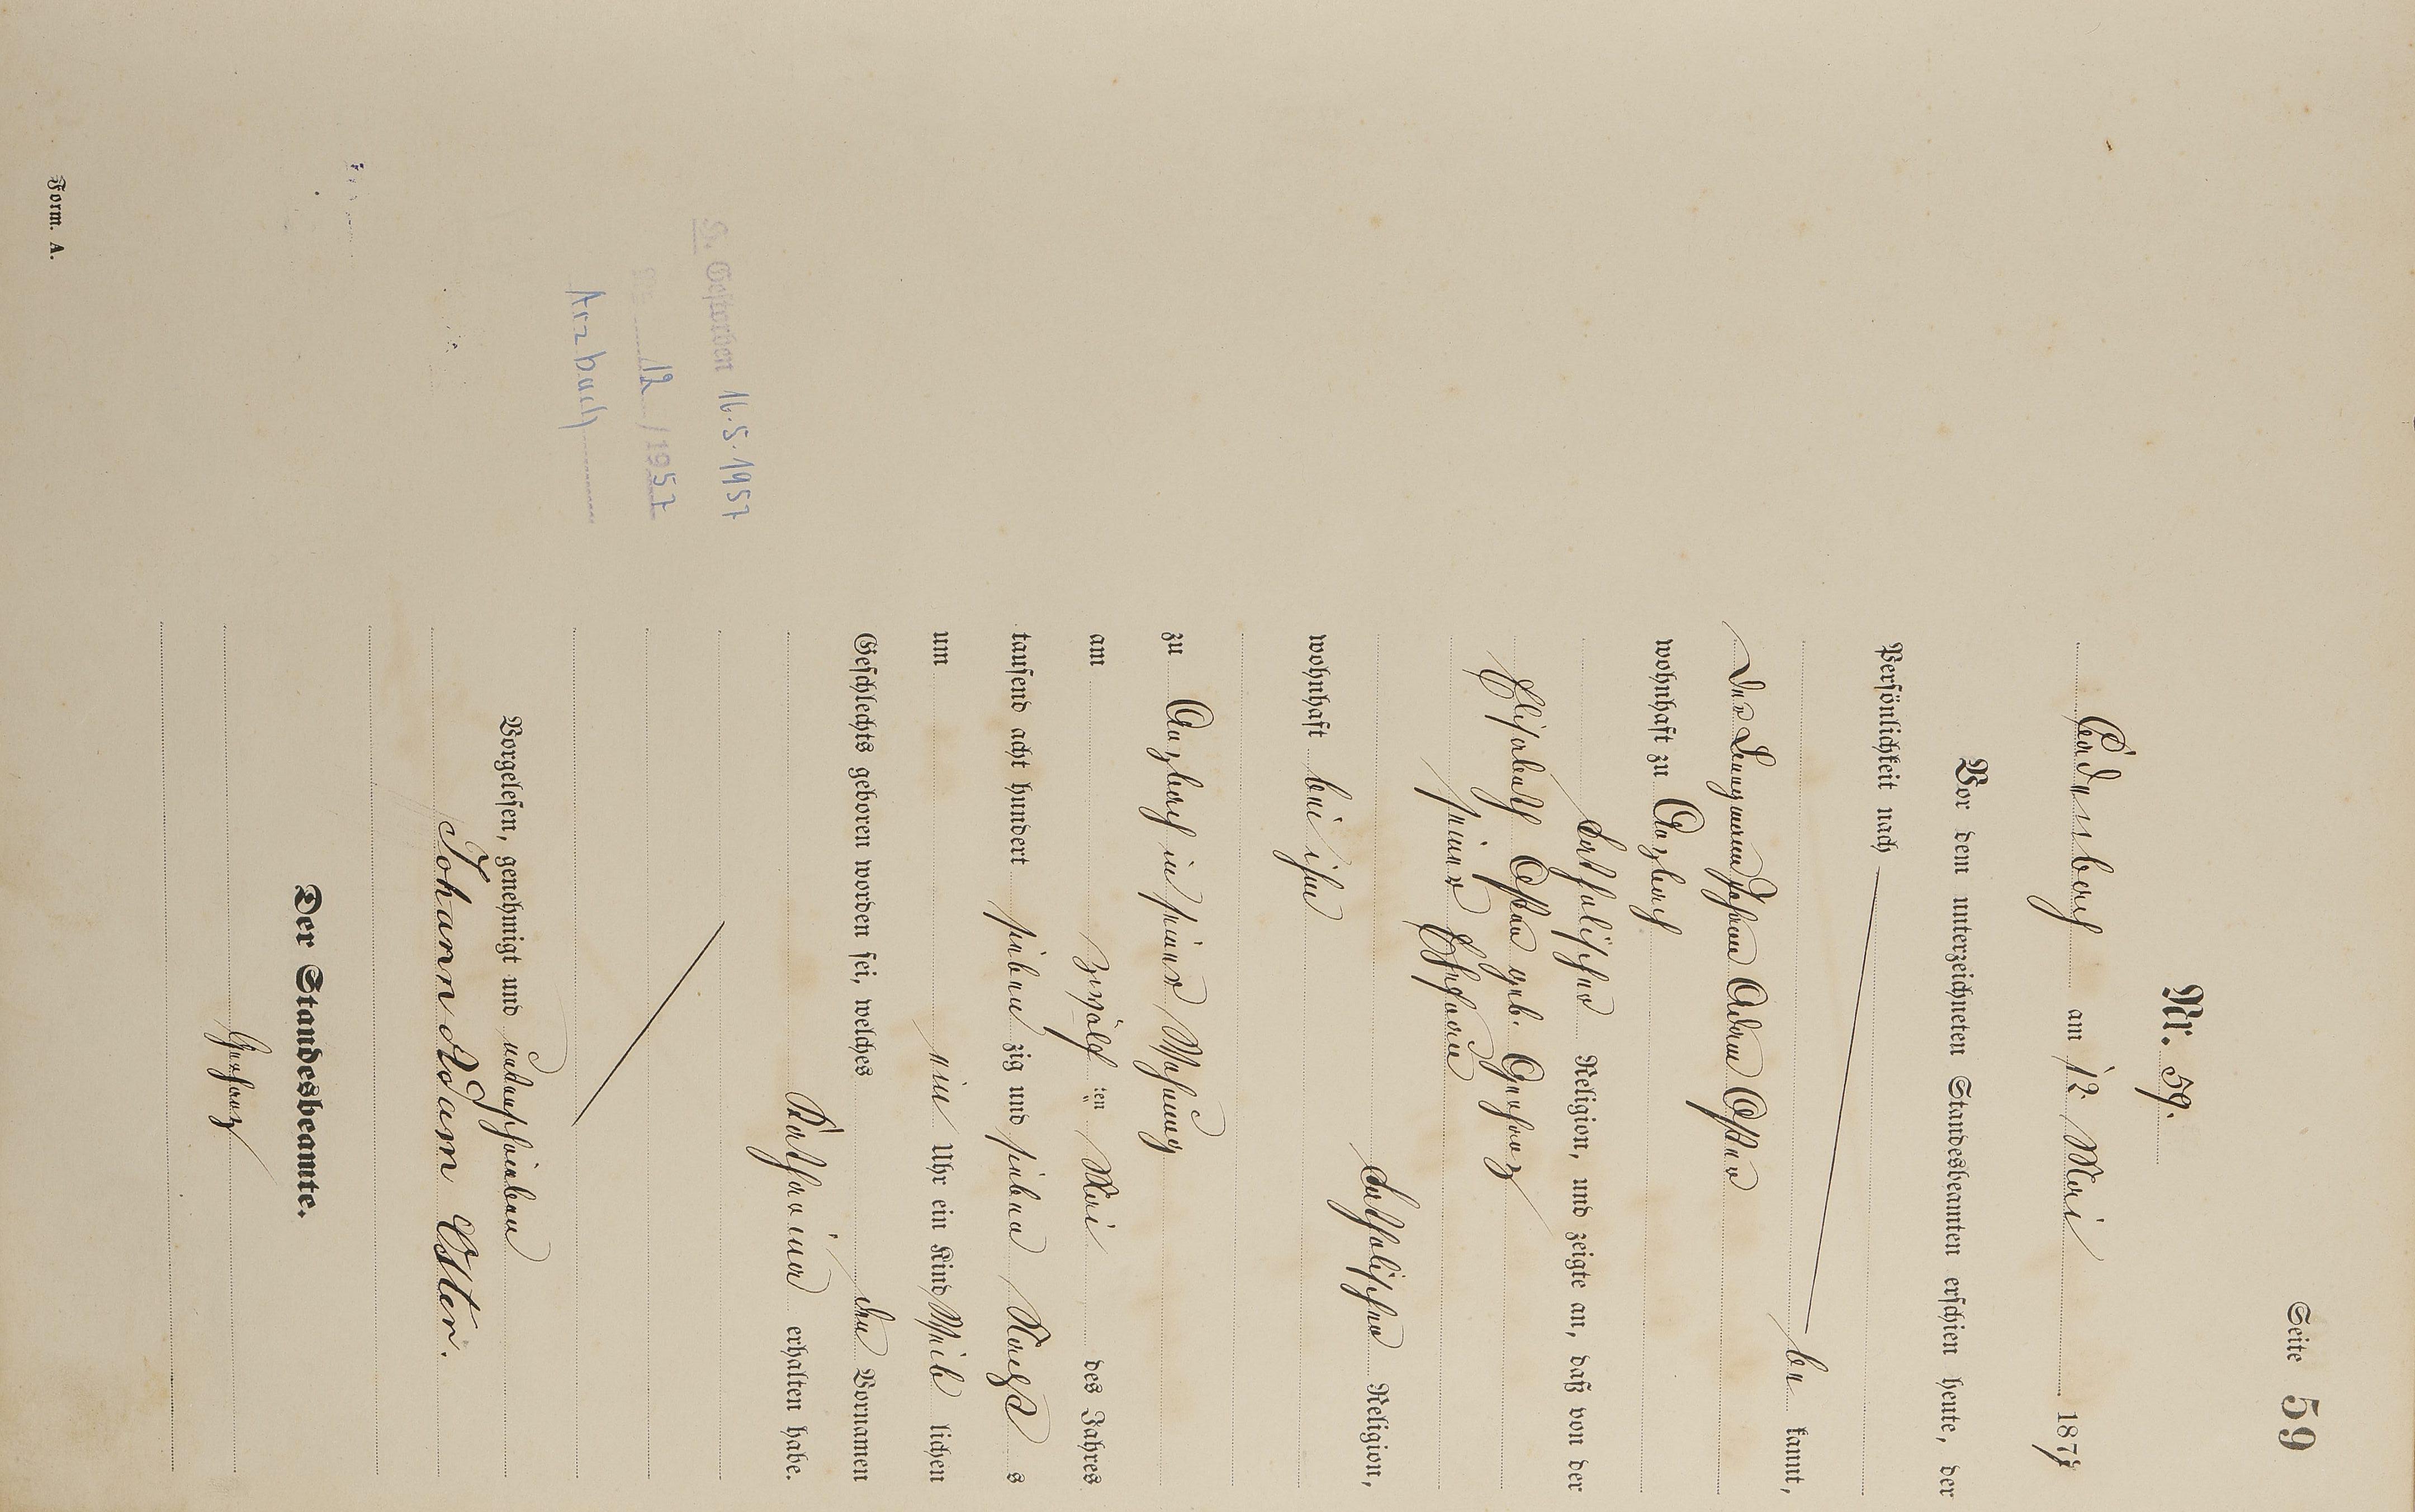 Seite 59
Nr. 59.
Cadenbach am 12. Mai 1877
Vor dem unterzeichneten Standesbeamten erschien heute, der
Persönlichkeit nach
be kannt,
der Bergmann Johann Adam Oster
wohnhaft zu Arzbach
katholischer Religion, und zeigte an, daß von der
Elisabeth Oster geb. Gerharz
seiner Ehefrau
katholischer Religion,
wohnhaft bei ihm
zu Arzbach in seiner Wohnung
am zwölf ten Mai des Jahres
tausend acht hundert sieben zig und sieben Nachts
um ein Uhr ein Kind weib lichen
Geschlechts geboren worden sei, welches den Vornamen
Katharina erhalten habe.
Vorgelesen, genehmigt und unterschrieben
Johann Adam Oster.
Der Standesbeamte.
Gerharz
G. Gestorben 16.5.1957
Nr. 12 / 1957
Arzbach
Form. A.